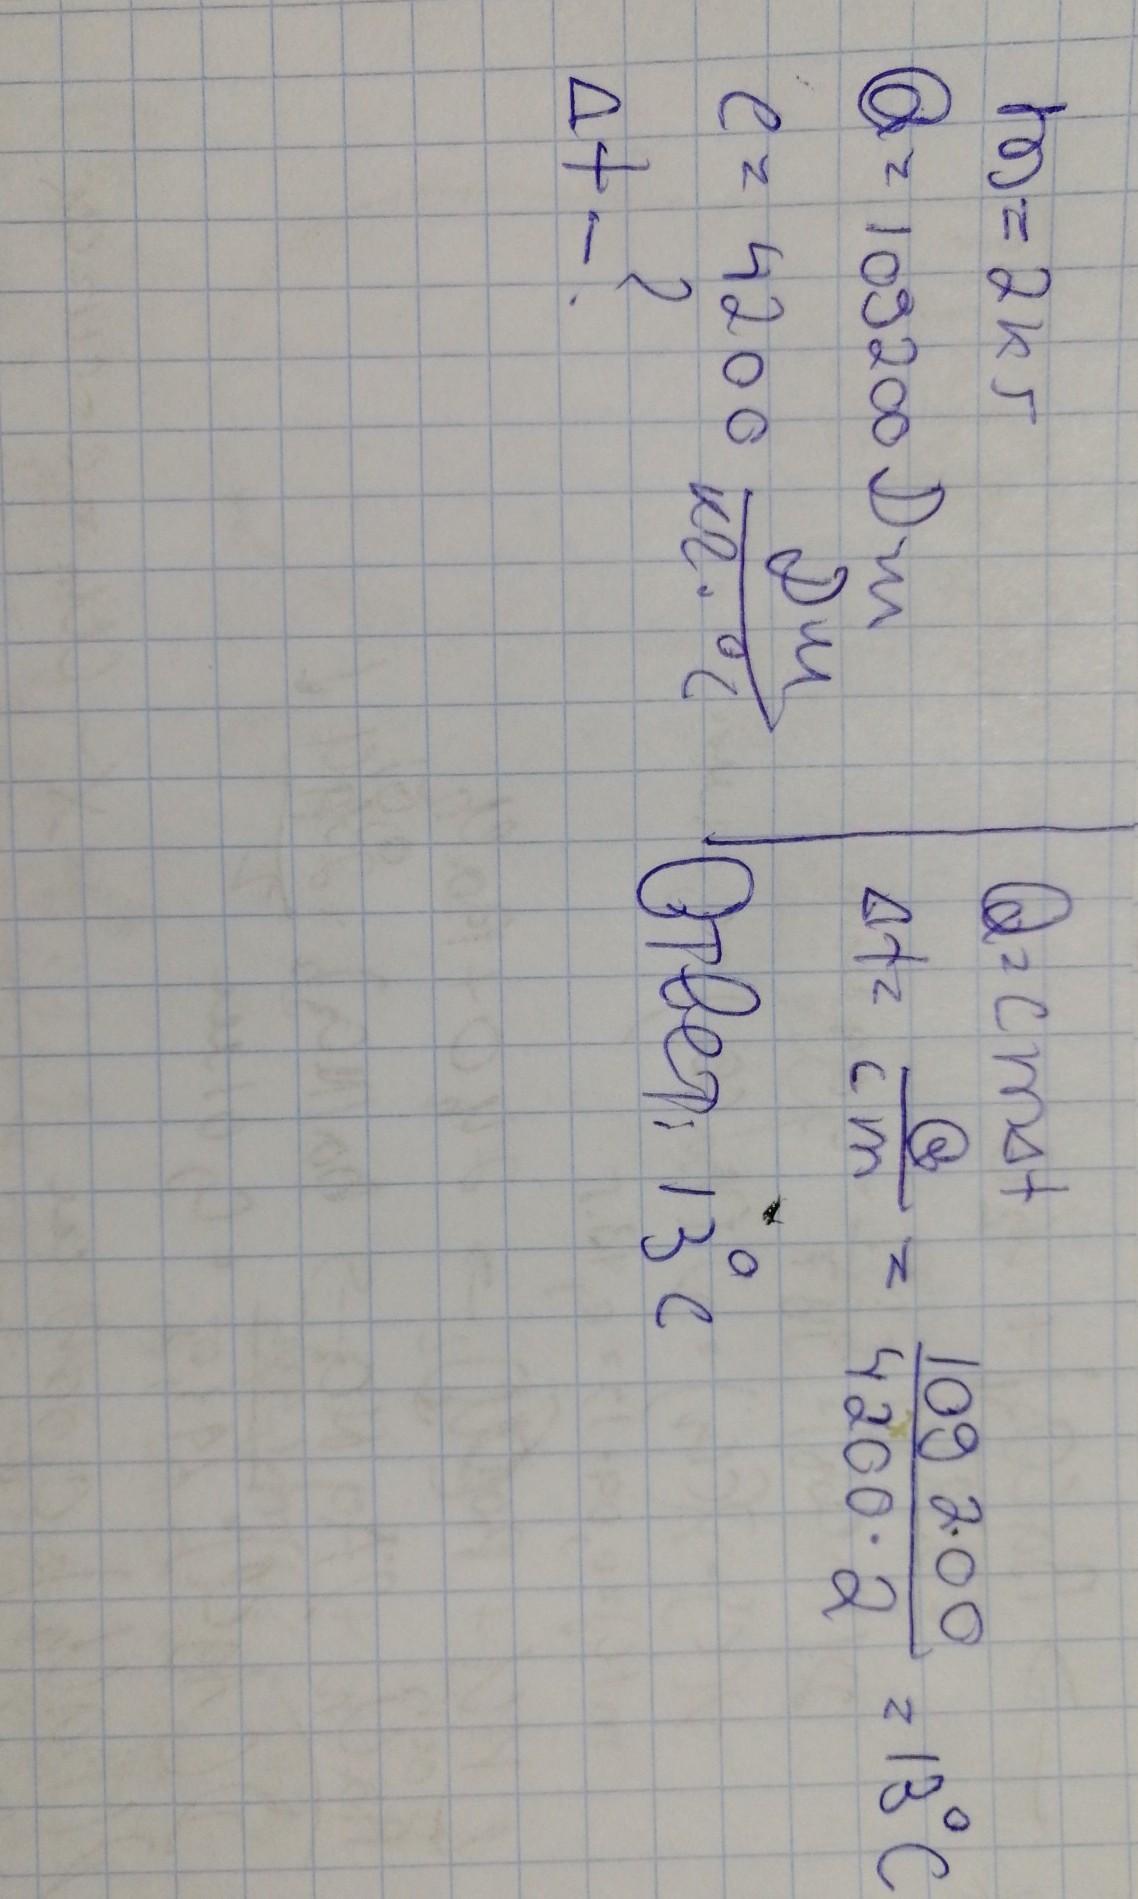 m = 2 кг
Q = 109200 Дж
c = 4200 Дж/кг·°С
Δt - ?
Q = cmΔt
Δt = Q/cm = 109 200/4200·2 = 13°C
Ответ: 13°C